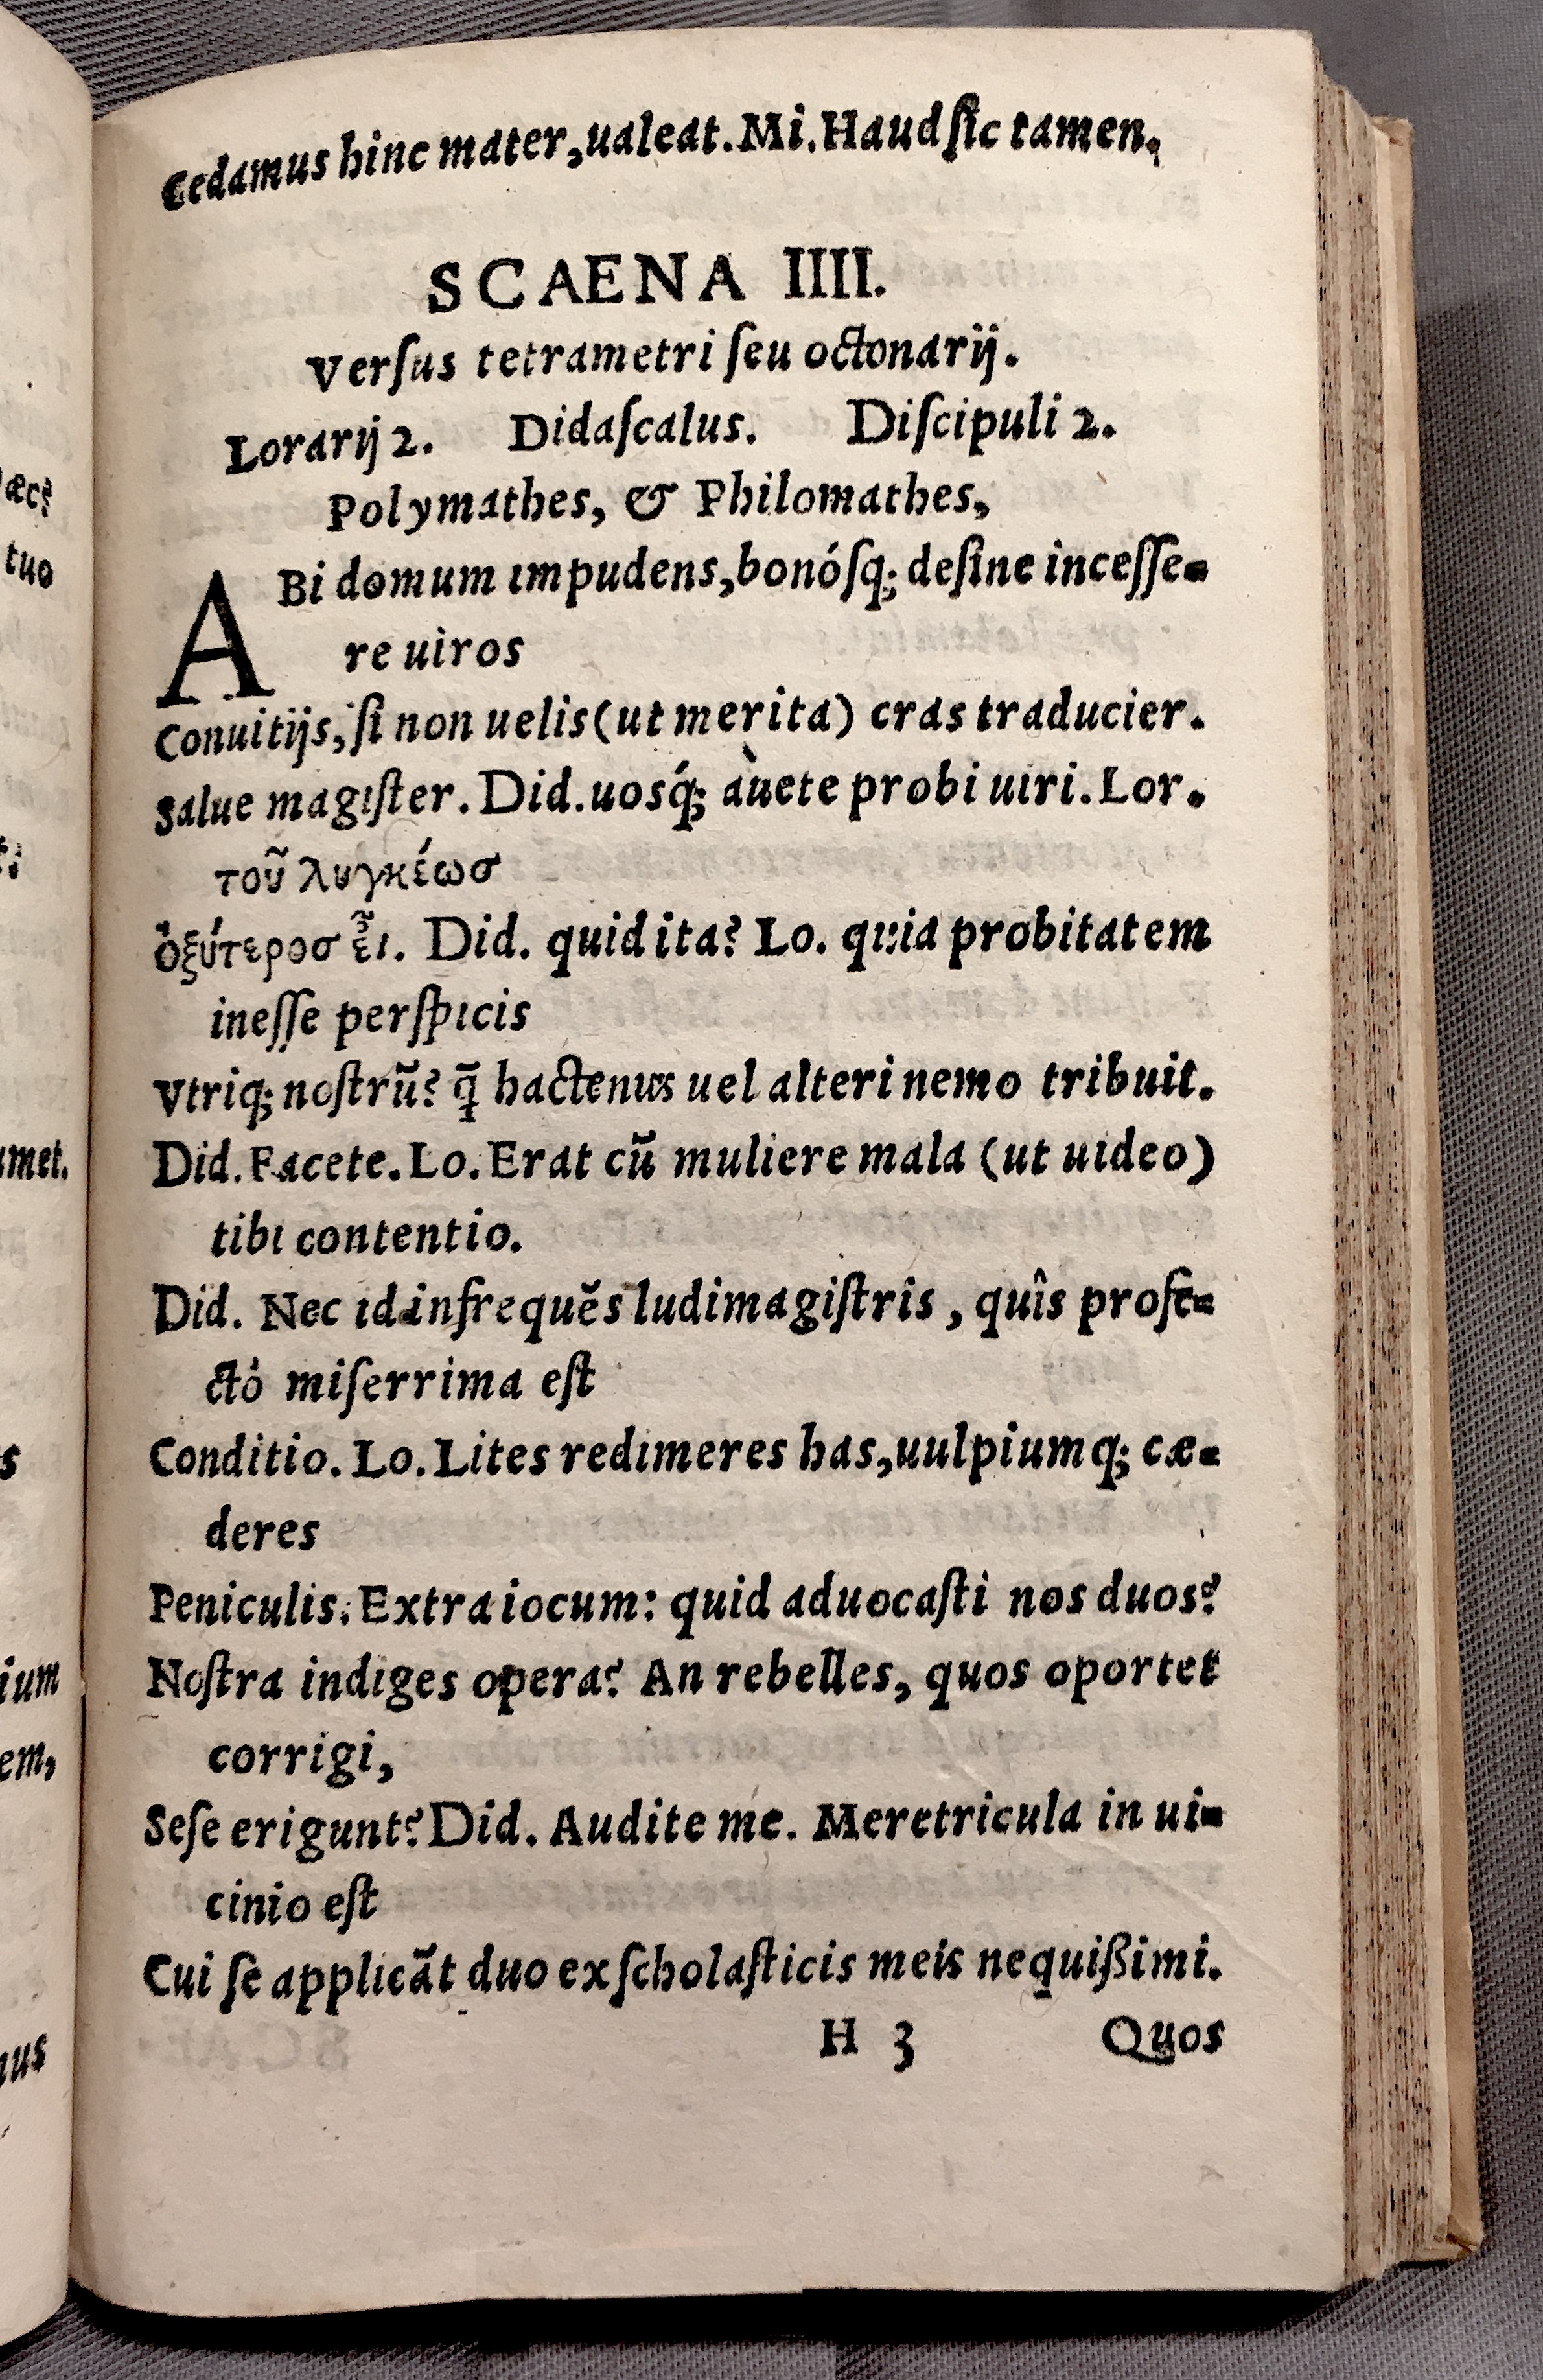 Cedamus hinc mater, ualeat. Mi. Haud ſic tamen.
SCAENA IIII.
Verſus tetrametri ſeu octonarij.
Lorarij 2. Didaſcalus. Diſcipuli 2.
Polymathes, & Philomathes,
ABi domum impudens, bonóſq; deſine inceſſe-
re uiros
Conuitijs, ſi non uelis (ut merita) cras traducier.
Salue magiſter. Did. uosq́; auete probi uiri. Lor.
τοῦ λυγκέωσ
ὀξύτεροσ εἶ. Did. quid ita? Lo. quia probitatem
ineſſe perſpicis
Vtriq; noſtrũ? q̃ hactenus uel alteri nemo tribuit.
Did. Facete. Lo. Erat cũ muliere mala (ut uideo)
tibi contentio.
Did. Nec id infrequẽs ludimagiſtris, quîs profe-
ctò miſerrima eſt
Conditio. Lo. Lites redimeres has, uulpiumq; cæ-
deres
Peniculis. Extra iocum: quid aduocaſti nos duos?
Noſtra indiges opera? An rebelles, quos oportet
corrigi,
Seſe erigunt? Did. Audite me. Meretricula in ui-
cinio eſt
Cui ſe applicãt duo ex ſcholaſticis meis nequißimi.
H 3 Quos
æc?
tuo
met.
s
ium
em,
nus